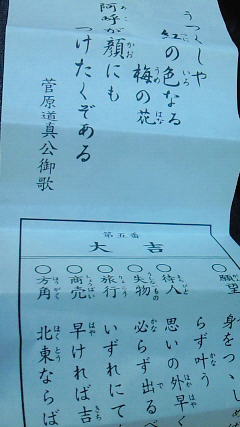 うつくしや
紅の色なる
梅の花
阿呼が顔にも
つけたくぞある
菅原道真公御歌
第五番
大吉
○願望 身をつゝしめ
らず叶う
○待人 思いの外早く
○失物 必らず出るべ
○旅行 いずれにて
○商売 早ければ吉
○方角 北東ならば